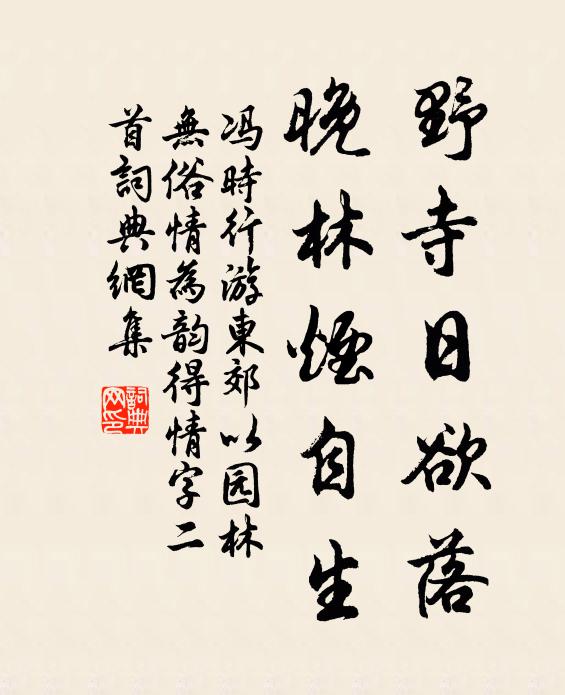 野寺日欲落
晚林煙自生
冯時行游東郊以园林
無俗情為韵得情字二
首詞典網集
詞典网印